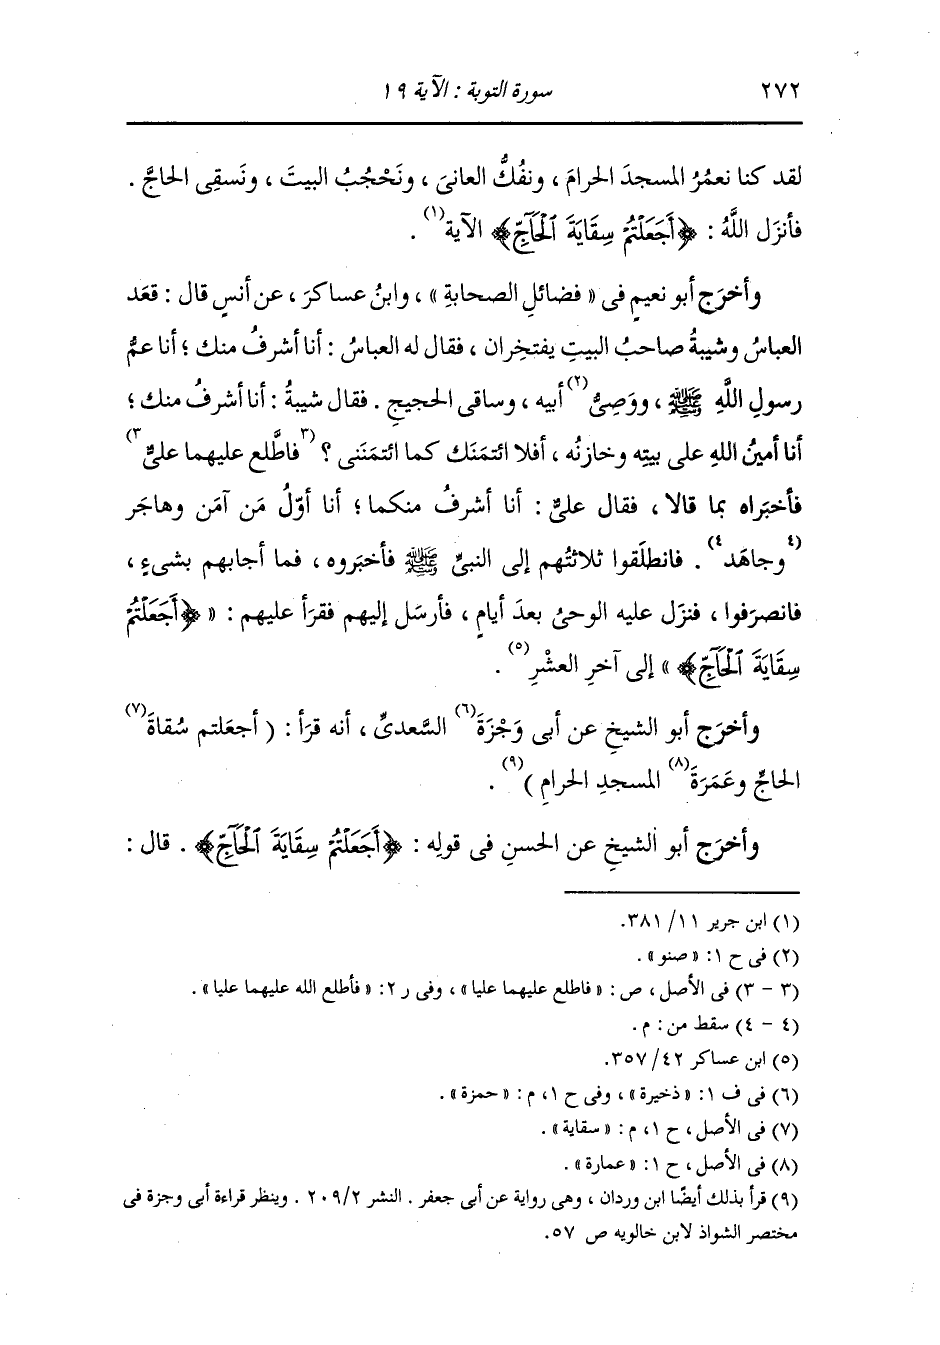 ٢٧٢
سورة التوبة : الآية ١٩
لقد كنا نعمُرُ المسجدَ الحرامَ ، ونفُكُّ العانىَ ، ونَحْجُبُ البيتَ ، ونَسقِى الحاجَّ .
فأنزَل اللَّهُ : ﴿أَجَعَلْتُمْ سِقَايَةَ ٱلْحَآجِّ﴾ الآية(١) .
وأخرَج أبو نعيمٍ فى « فضائلِ الصحابةِ » ، وابنُ عساكرَ ، عن أنسٍ قال : قعَد
العباسُ وشيبةُ صاحبُ البيتِ يفتخِران ، فقال له العباسُ : أنا أشرفُ منك ؛ أنا عمُّ
رسولِ اللَّهِ ﷺ ، ووَصِىُّ(٢) أبيه ، وساقى الحجيجِ . فقال شيبةُ : أنا أشرفُ منك ؛
أنا أمينُ اللهِ على بيتِه وخازنُه ، أفلا ائتمَنَك كما ائتمَنَنى ؟ (٣فاطَّلع عليهما علىٌّ٣)
فأخبَراه بما قالا ، فقال علىٌّ : أنا أشرفُ منكما ؛ أنا أوّلُ مَن آمَن وهاجَر
(٤وجاهَد٤) . فانطلَقوا ثلاثتُهم إلى النبىِّ ﷺ فأخبَروه ، فما أجابهم بشىءٍ ،
فانصرَفوا ، فنزَل عليه الوحىُ بعدَ أيامٍ ، فأرسَل إليهم فقرَأ عليهم : « ﴿أَجَعَلْتُمْ
سِقَايَةَ ٱلْحَآجِّ﴾ » إلى آخرِ العشْرِ(٥) .
وأخرَج أبو الشيخِ عن أبى وَجْزَةَ(٦) السَّعدىِّ ، أنه قرَأ : ( أجعَلتم سُقاةَ(٧)
الحاجِّ وعَمَرَةَ(٨) المسجدِ الحرامِ )(٩) .
وأخرَج أبو الشيخِ عن الحسنِ فى قولِه : ﴿أَجَعَلْتُمْ سِقَايَةَ ٱلْحَآجِّ﴾ . قال :
(١) ابن جرير ١١/ ٣٨١.
(٢) فى ح ١: « صنو » .
(٣ - ٣) فى الأصل ، ص : « فاطلع عليهما عليا » ، وفى ر ٢: « فأطلع الله عليهما عليا » .
(٤ - ٤) سقط من : م .
(٥) ابن عساكر ٤٢/ ٣٥٧.
(٦) فى ف ١: « ذخيرة » ، وفى ح ١، م : « حمزة » .
(٧) فى الأصل ، ح ١، م : « سقاية » .
(٨) فى الأصل ، ح ١: « عمارة » .
(٩) قرأ بذلك أيضًا ابن وردان ، وهى رواية عن أبى جعفر . النشر ٢٠٩/٢ . وينظر قراءة أبى وجزة فى
مختصر الشواذ لابن خالويه ص ٥٧.